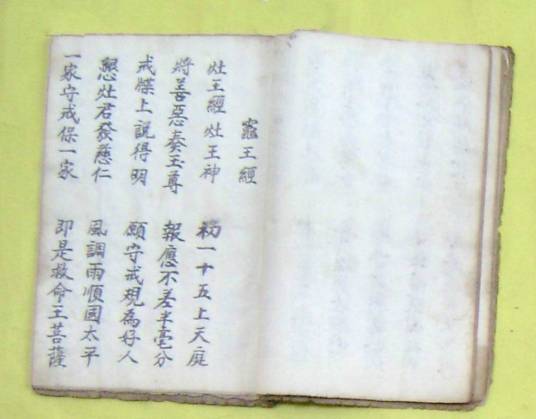 竈王經
灶王經灶王神 初一十五上天庭
將善惡奏玉尊 報應不差半毫分
戒牒上說得明 願守戒規為好人
懇灶君發慈仁 風調雨順國太平
一家守戒保一家 即是救命王菩薩